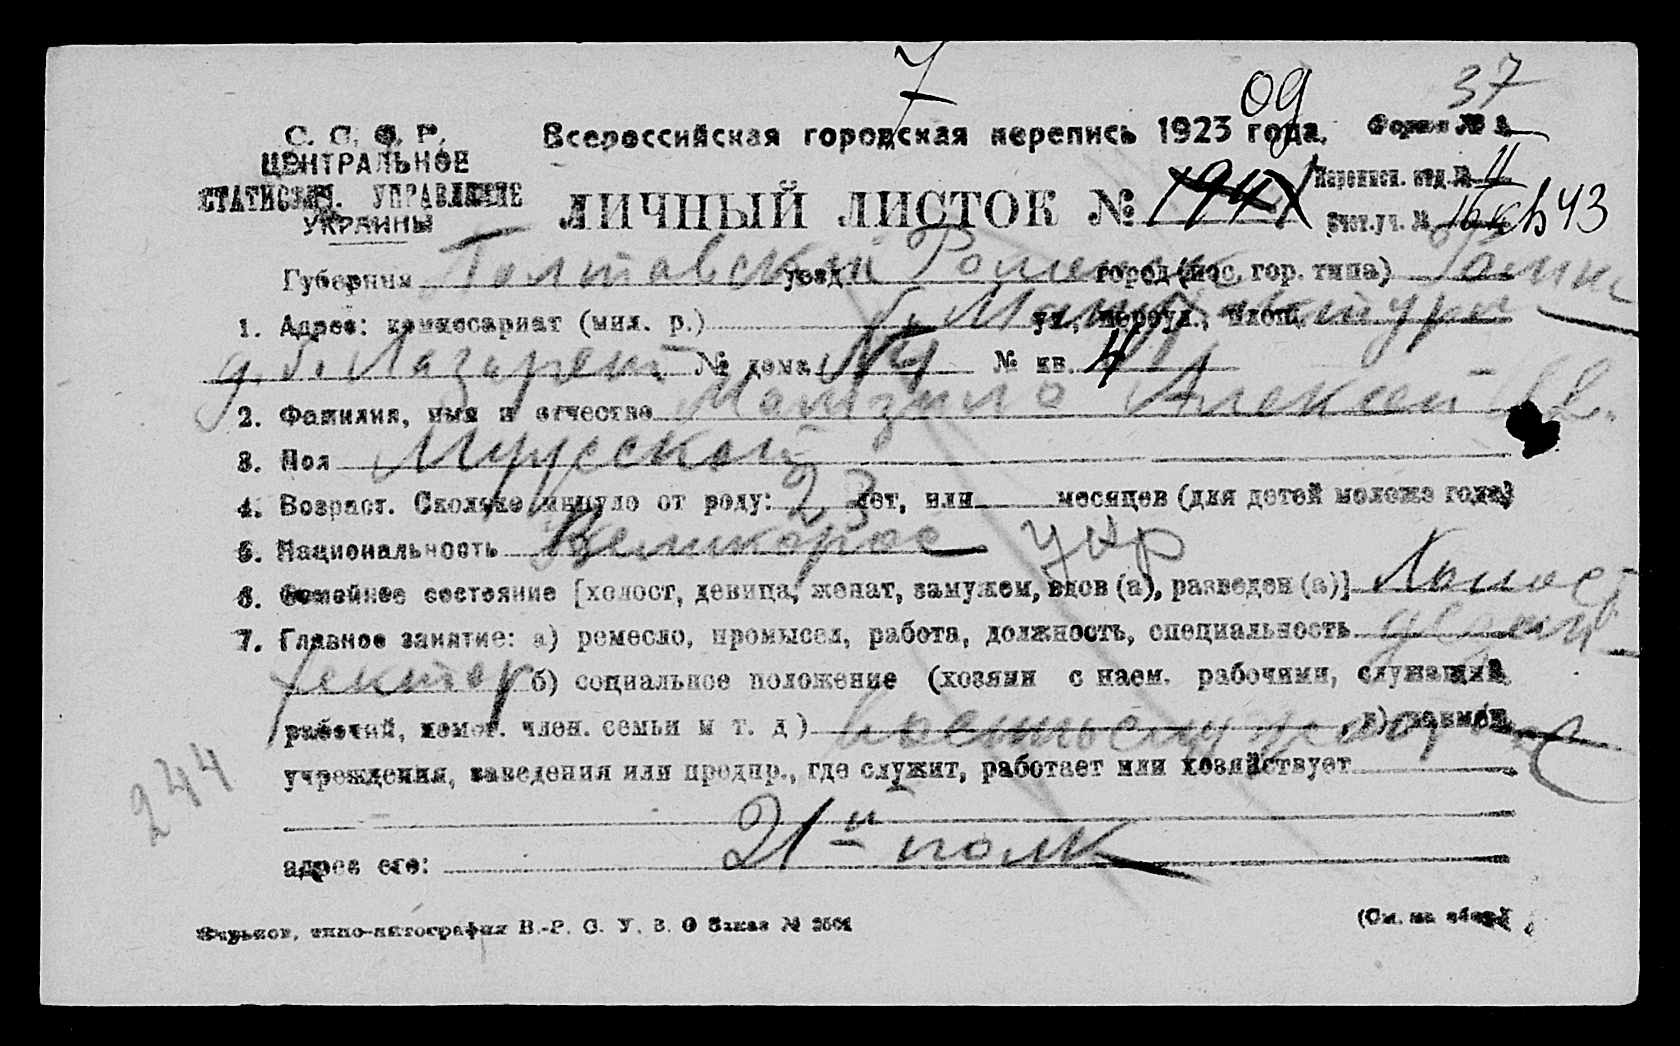 7 09 37
С. С. С. Р. Всероссийская городская перепись 1923 года. Форма № 2
ЦЕНТРАЛЬНОЕ
СТАТИСТИЧ. УПРАВЛЕНИЕ
УКРАИНЫ
ЛИЧНЫЙ ЛИСТОК № 1941
Переписн. отд. № 11
Счет.уч. № 16 43
Губерния Полтавская уезд Роменск город (пос. гор. типа) Ромны
1. Адрес: комиссариат (мил. р.) б. Мануфактуры ул., переул., площ.
д. б. Лазарет № дома № 4 № кв. 4
2. Фамилия, имя и отчество Алексей
3. Пол Мужской
4. Возраст. Сколько минуло от роду: 23 лет, или месяцев (для детей моложе года)
5. Национальность Великорос укр
6. Семейное состояние [холост, девица, женат, замужем, вдов (а), разведен (а)] Холост
7. Главное занятие: а) ремесло, промысел, работа, должность, специальность дезин-
фектор б) социальное положение (хозяин с наем. рабочими, служащий,
рабочий, помог. член. семьи и т. д) в) наимен.
учреждения, заведения или предпр., где служит, работает или хозяйствует
244
21й полк
адрес его:
Харьков, типо-литография В.-Р. С. У. В. О Заказ № (См. на обор.)